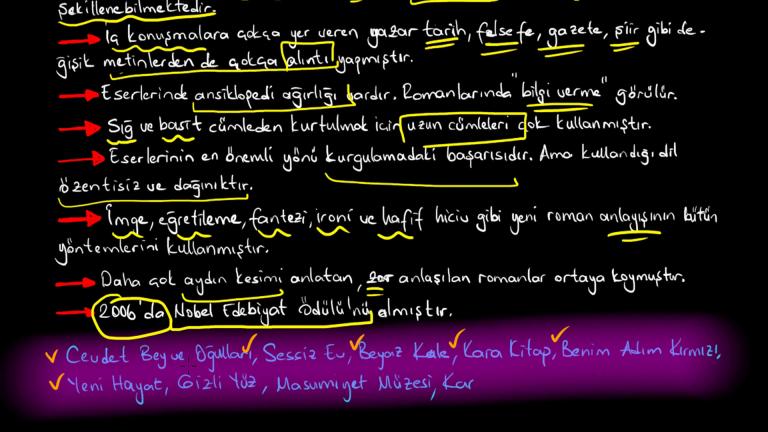 şekillenebilmektedir.
İç konuşmalara çokça yer veren yazar tarih, felsefe, gazete, şiir gibi de-
ğişik metinlerden de çokça alıntı yapmıştır.
Eserlerinde ansiklopedi ağırlığı vardır. Romanlarında "bilgi verme" görülür.
Sığ ve basit cümleden kurtulmak için uzun cümleleri çok kullanmıştır.
Eserlerinin en önemli yönü kurgulamadaki başarısıdır. Ama kullandığı dil
özentisiz ve dağınıktır.
İmge, eğretileme, fantezi, ironi ve hafif hiciv gibi yeni roman anlayışının bütün
yöntemlerini kullanmıştır.
Daha çok aydın kesimi anlatan, zor anlaşılan romanlar ortaya koymuştur.
2006'da Nobel Edebiyat Ödülü'nü almıştır.
Cevdet Bey ve Oğulları, Sessiz Ev, Beyaz Kale, Kara Kitap, Benim Adım Kırmızı,
Yeni Hayat, Gizli Yüz, Masumiyet Müzesi, Kar